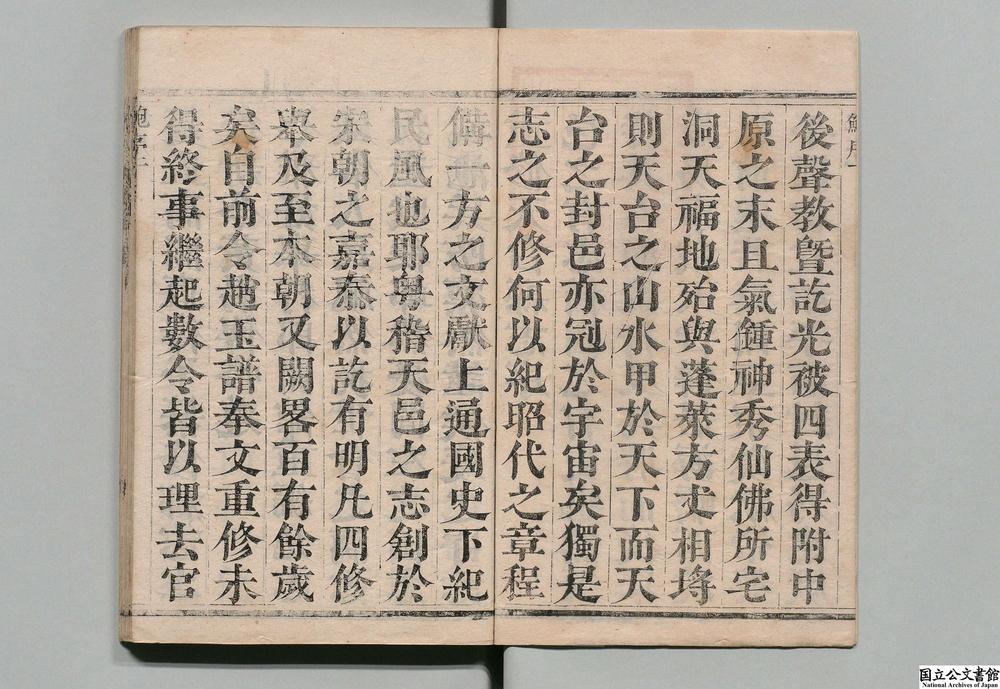 後聲教暨訖光被四表得附中
原之末且氣鍾神秀仙佛所宅
洞天福地殆與蓬萊方丈相埒
則天台之山水甲於天下而天
台之封邑亦冠於宇宙矣獨是
志之不修何以紀昭代之章程
備一方之文獻上通國史下紀
民風也耶粤稽天邑之志創於
宋朝之嘉泰以訖有明凡四修
舉及至本朝又闕畧百有餘歲
矣自前令趙玉譜奉文重修未
得終事繼起數令皆以理去官
国立公文書館
National Archives of Japan